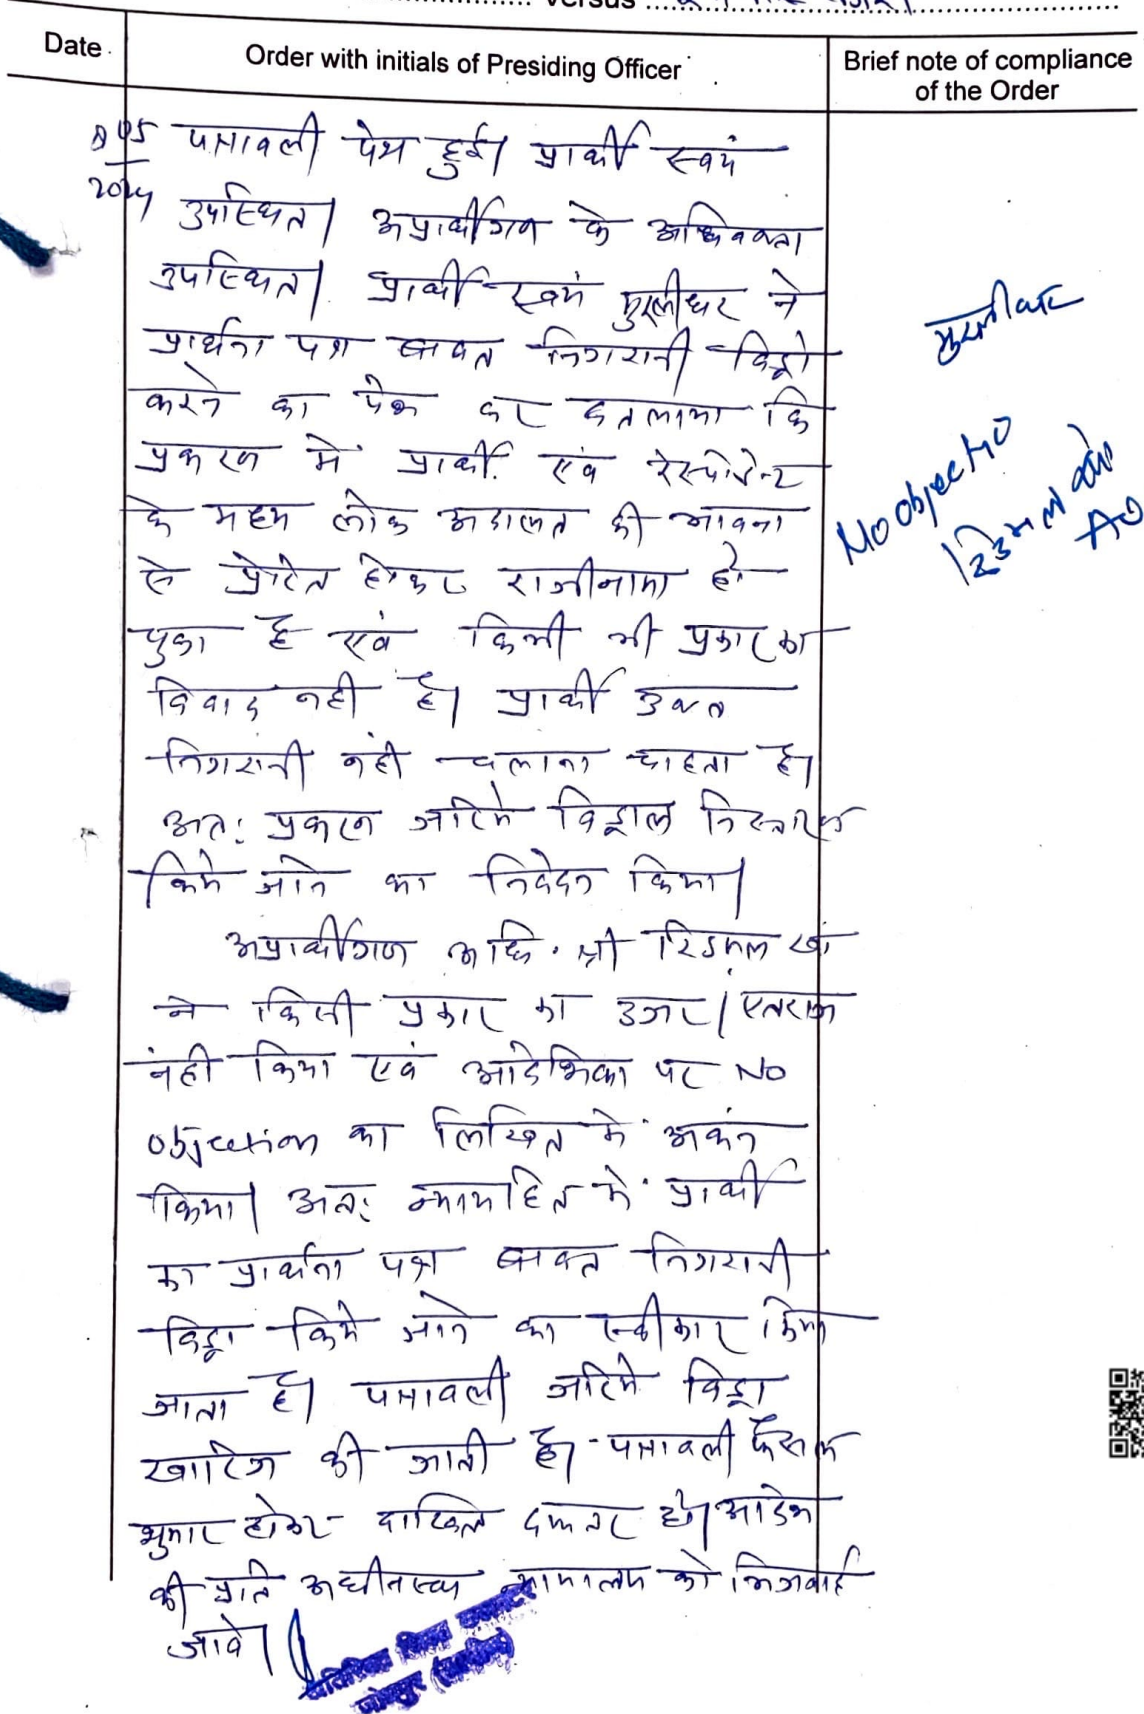 versus
Date
Order with initials of Presiding Officer
Brief note of compliance of the Order
पत्रावली पेश हुई। प्रार्थी स्वयं
2024
उपस्थित। अप्रार्थीगण के अधिवक्ता
उपस्थित। प्रार्थी स्वयं मुरलीधर ने
प्रार्थना पत्र बाबत निगरानी विड्रो
करने का पेश कर बतलाया कि
प्रकरण में प्रार्थी एवं रेस्पोडेन्ट
के मध्य लोक अदालत की भावना
से प्रेरित होकर राजीनामा हो
चुका है एवं किसी भी प्रकार का
विवाद नही है। प्रार्थी उक्त
निगरानी नंही चलाना चाहता है।
अतः प्रकरण जरिये विड्राल निस्तारण
किये जाने का निवेदन किया।
अप्रार्थीगण अधि. श्री रिडमल खां
ने किसी प्रकार का उजर/एतराज
नंही किया एवं आदेशिका पर NO
objection का लिखित मे अकंन
किया। अतः न्यायहित मे प्रार्थी
का प्रार्थना पत्र बाबत निगरानी
विड्रा किये जाने का स्वीकार किया
जाता है। पत्रावली जरिये विड्रा
खारिज की जाती है। पत्रावली फैसल
शुमार होकर दाखिल दफ्तर हो। आदेश
की प्रति अधीनस्थ न्यायालय को भिजवाई
जावे।
अतिरिक्त जिला कलक्टर
जोधपुर
मुरलीधर
No objectio
रिडमल खां
AD